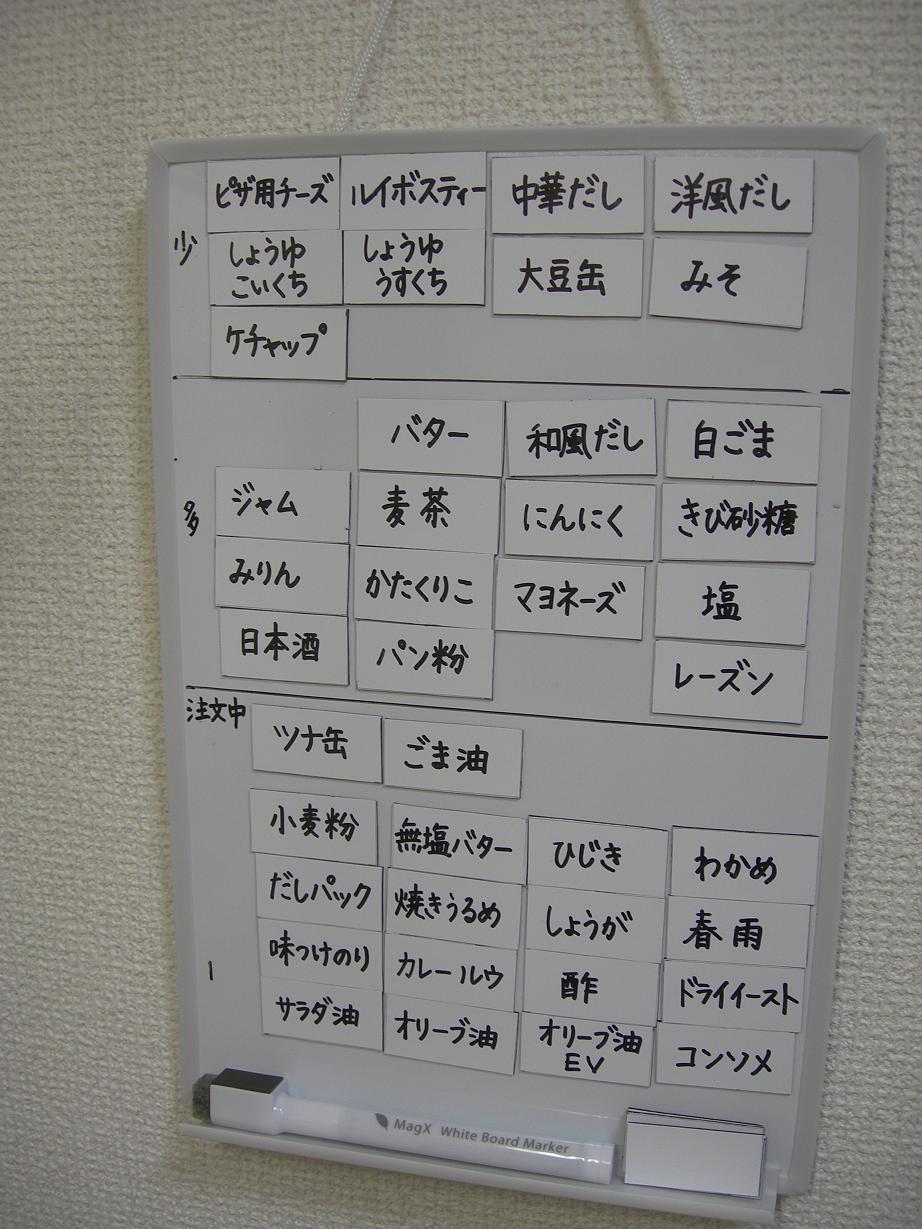 ピザ用チーズ ルイボスティー 中華だし 洋風だし
少
しょうゆ
こいくち
しょうゆ
うすくち
大豆缶 みそ
ケチャップ
バター 和風だし 白ごま
多
ジャム 麦茶 にんにく きび砂糖
みりん かたくりこ マヨネーズ 塩
日本酒 パン粉 レーズン
注文中
ツナ缶 ごま油
小麦粉 無塩バター ひじき わかめ
だしパック 焼きうるめ しょうが 春雨
1
味つけのり カレールウ 酢 ドライイースト
サラダ油 オリーブ油
オリーブ油
EV
コンソメ
MagX White Board Marker